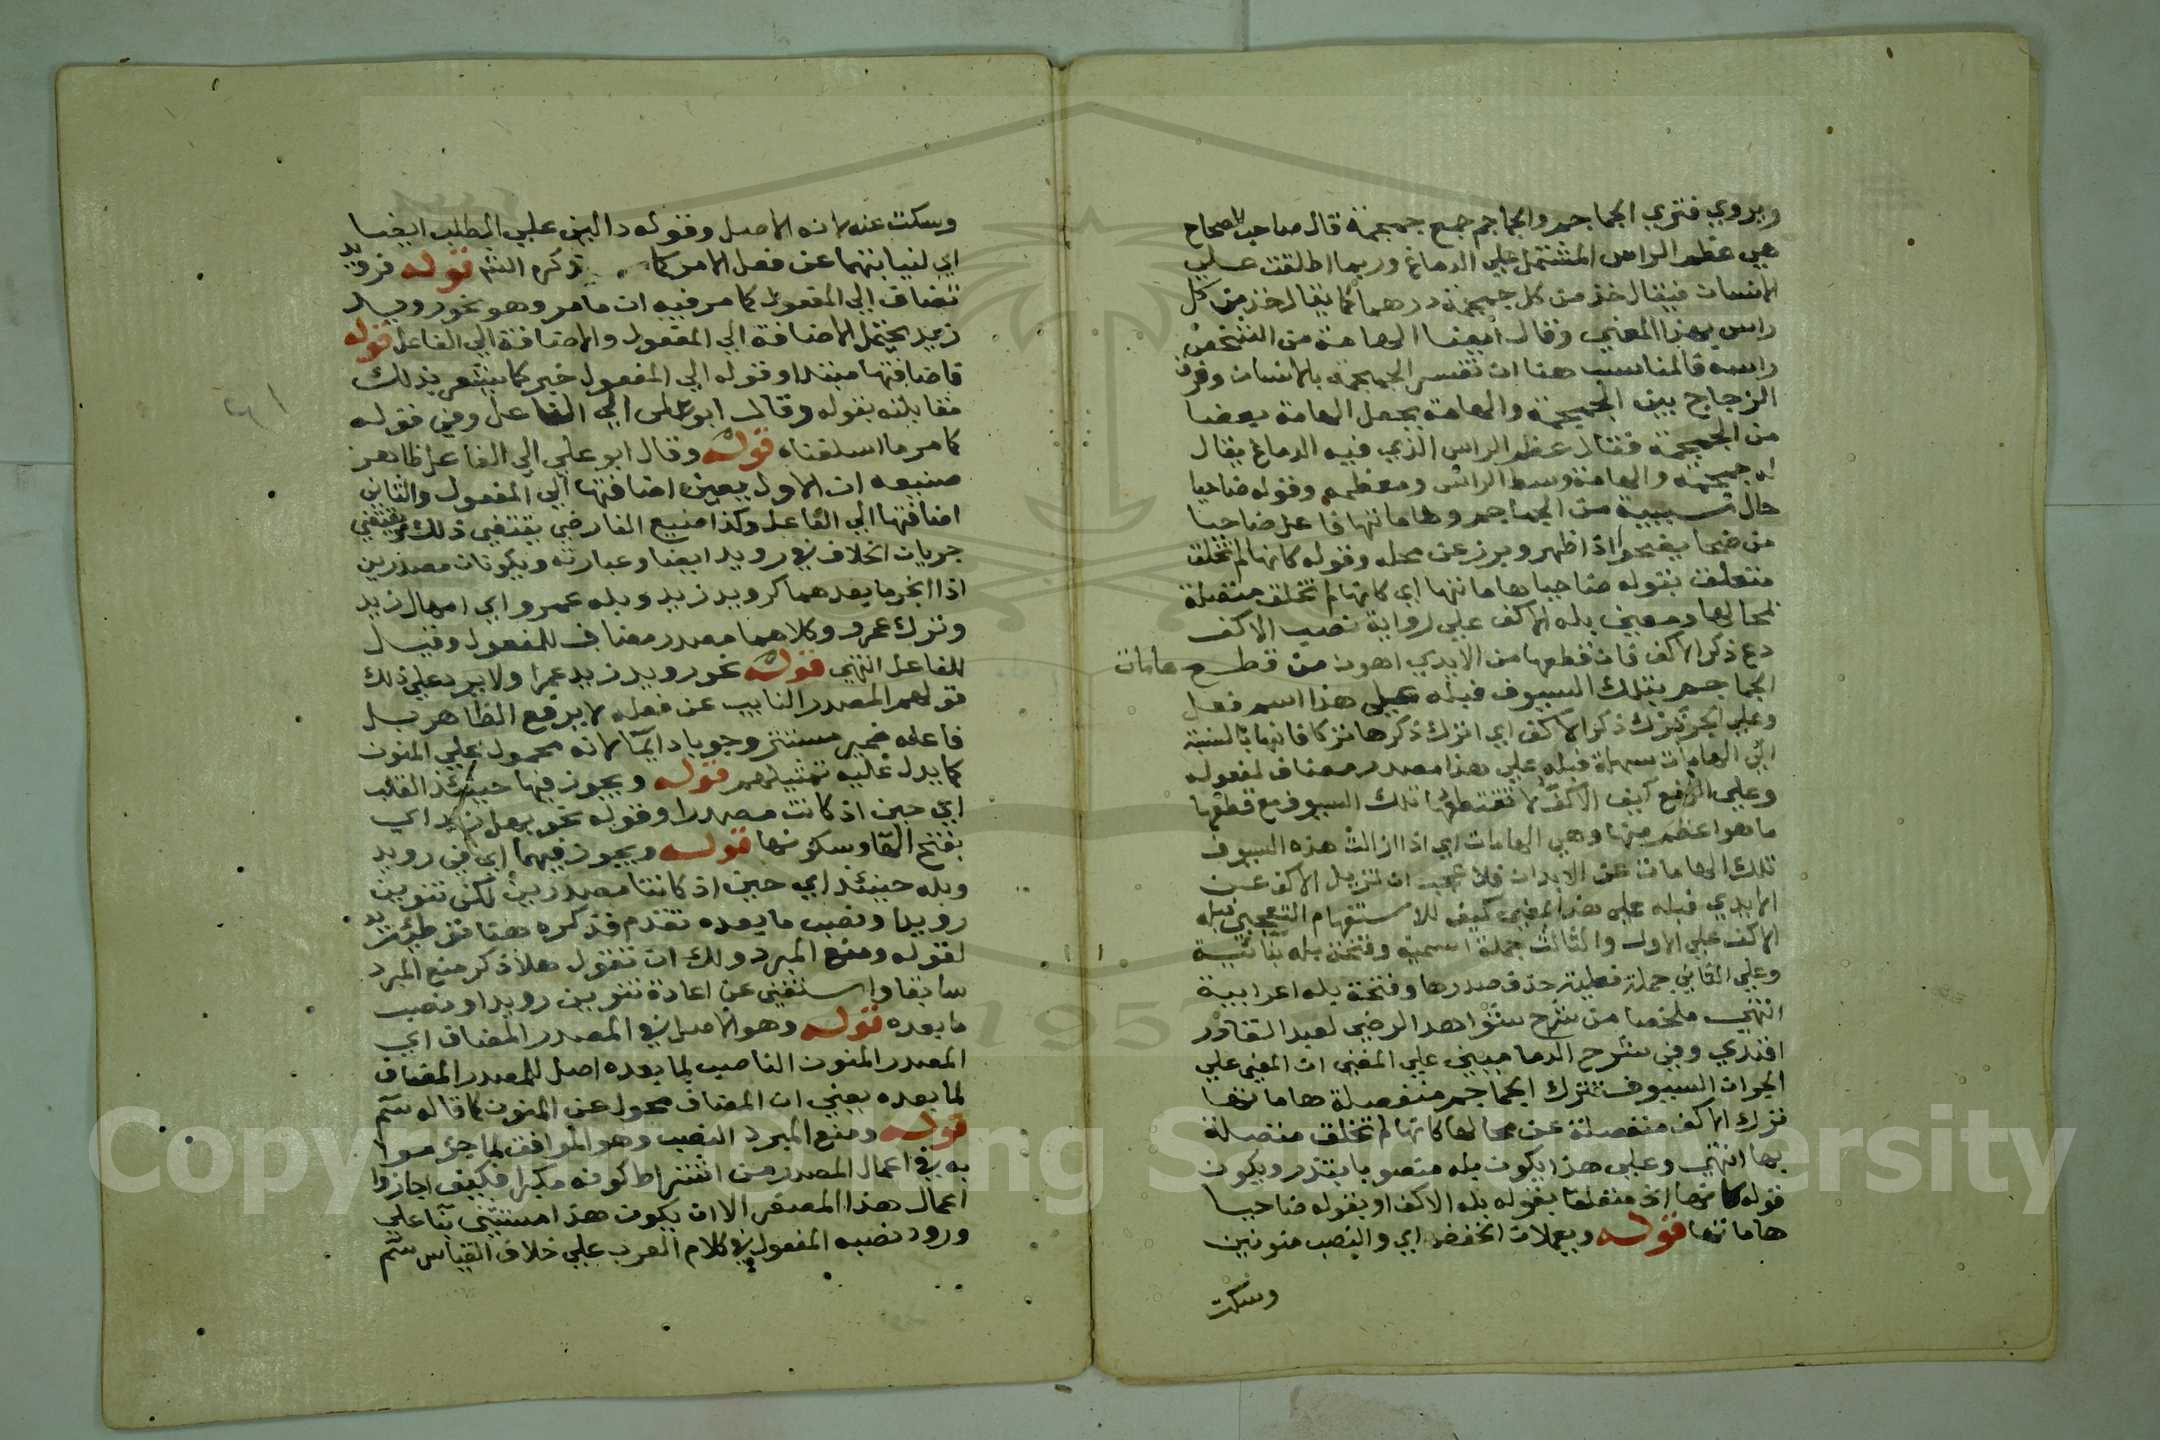 ويروي فتري الجماجم والجماجم جمع جمجمة قال صاحب الصحاح
هي عظم الراس المشتمل علي الدماغ وربما اطلقت علي
الانسان فيقال خذ من كل جمجمة درهما كما يقال خذ من كل
راس بهذا المعني وقال ايضا الهامة من الشخص
راسه فالمناسب هنا ان تفسر الجمجمة بالانسان وفرق
الزجاج بين الجمجمة والهامة بجعل الهامة بعضا
من الجمجمة فقال عظم الراس الذي فيه الدماغ يقال
له جمجمة والهامة وسط الراس ومعظمه وقوله ضاحيا
حال سببية من الجماجم وهاماتها فاعل ضاحيا
من ضحا يضحوا اذا ظهر وبرز عن محله وقوله كانها لم تخلق
متعلق بقوله ضاحيا هاماتها اي كانها لم تخلق متصلة
بمحالها ومعني بله الاكف علي رواية نصب الاكف
دع ذكر الاكف فان قطعها من الايدي اهون من قطع هامات
الجماجم بتلك السيوف فبله علي هذا اسم فعل
وعلي الجر ترك ذكر الاكف اي اترك ذكرها تركا فانها بالنسبة
الي الهامات سهلة فبله علي هذا مصدر مضاف لمفعوله
وعلي الرفع كيف الاكف لا تقطعها تلك السيوف مع قطعها
ما هو اعظم منها وهي الهامات اي اذا ازالت هذه السيوف
تلك الهامات عن الابدان فلا عجب ان تزيل الاكف عن
الايدي فبله علي هذا المعني كيف للاستفهام التعجبي فبله
الاكف علي الاول والثالث جملة اسمية وفتحة بله بنائية
وعلي الثاني جملة فعلية حذف صدرها وفتحة بله اعرابية
انتهي ملخصا من شرح شواهد الرضي لعبد القادر
افندي وفي شرح الدماميني علي المغني ان المعني علي
الجر ان السيوف تترك الجماجم منفصلة هاماتها
ترك الاكف منفصلة عن محالها كانها لم تخلق متصلة
بها انتهي وعلي هذا يكون بله منصوبا بتذر ويكون
قوله كانها الخ متعلقا بقوله بله الاكف او بقوله ضاحيا
هاماتها قوله ويعملان الخفض اي والنصب منونين
وسكت
وسكت عنه لانه الاصل وقوله دالين علي الطلب ايضا
اي لنيابتهما عن فعل الامر كما ذكره الش قوله فرويد
تضاف الي المفعول كما مر فيه ان ما مر وهو نحو رويد
زيد يحتمل الاضافة الي المفعول والاضافة الي الفاعل قوله
فاضافتها مبتدا وقوله الي المفعول خبر كما يشعر بذلك
مقابلته بقوله وقال ابو علي الي الفاعل وفي قوله
كما مر ما اسلفناه قوله وقال ابو علي الي الفاعل ظاهر
صنيعه ان الاول يعين اضافتها الي المفعول والثاني
اضافتها الي الفاعل وكذا صنيع الفارضي يقتضي ذلك ويقتضي
جريان الخلاف في رويد ايضا وعبارته ويكونان مصدرين
اذا انجر ما بعدهما كرويد زيد وبله عمرو اي امهال زيد
وترك عمرو وكلاهما مصدر مضاف للمفعول وقيل
للفاعل انتهي قوله نحو رويد زيد عمرا ولا يرد علي ذلك
قولهم المصدر النايب عن فعله لا يرفع الظاهر بل
فاعله ضمير مستتر وجوبا دايما لانه محمول علي المنون
كما يدل عليه تمثيلهم قوله ويجوز فيها حينئذ القلب
اي حين اذ كانت مصدرا وقوله نحو بهل زيد اي
بفتح الها وسكونها قوله ويجوز فيهما اي في رويد
وبله حينئذ اي حين اذ كانتا مصدرين لكن تنوين
رويدا ونصب ما بعده تقدم فذكره هنا توطئة
لقوله ومنع المبرد ولك ان تقول هلا ذكر منع المبرد
سابقا واستغني عن اعادة تنوين رويدا ونصب
ما بعده قوله وهو الاصل في المصدر المضاف اي
المصدر المنون الناصب لما بعده اصل للمصدر المضاف
لما بعده يعني ان المضاف محول عن المنون كما قاله سم
قوله ومنع المبرد النصب وهو الموافق لما جزموا
به في اعمال المصدر من اشتراط كونه مكبرا فكيف اجازوا
اعمال هذا المصغر الا ان يكون هذا مستثني بنا علي
ورود نصبه المفعول في كلام العرب علي خلاف القياس سم
1957
Copyright © King Saud University